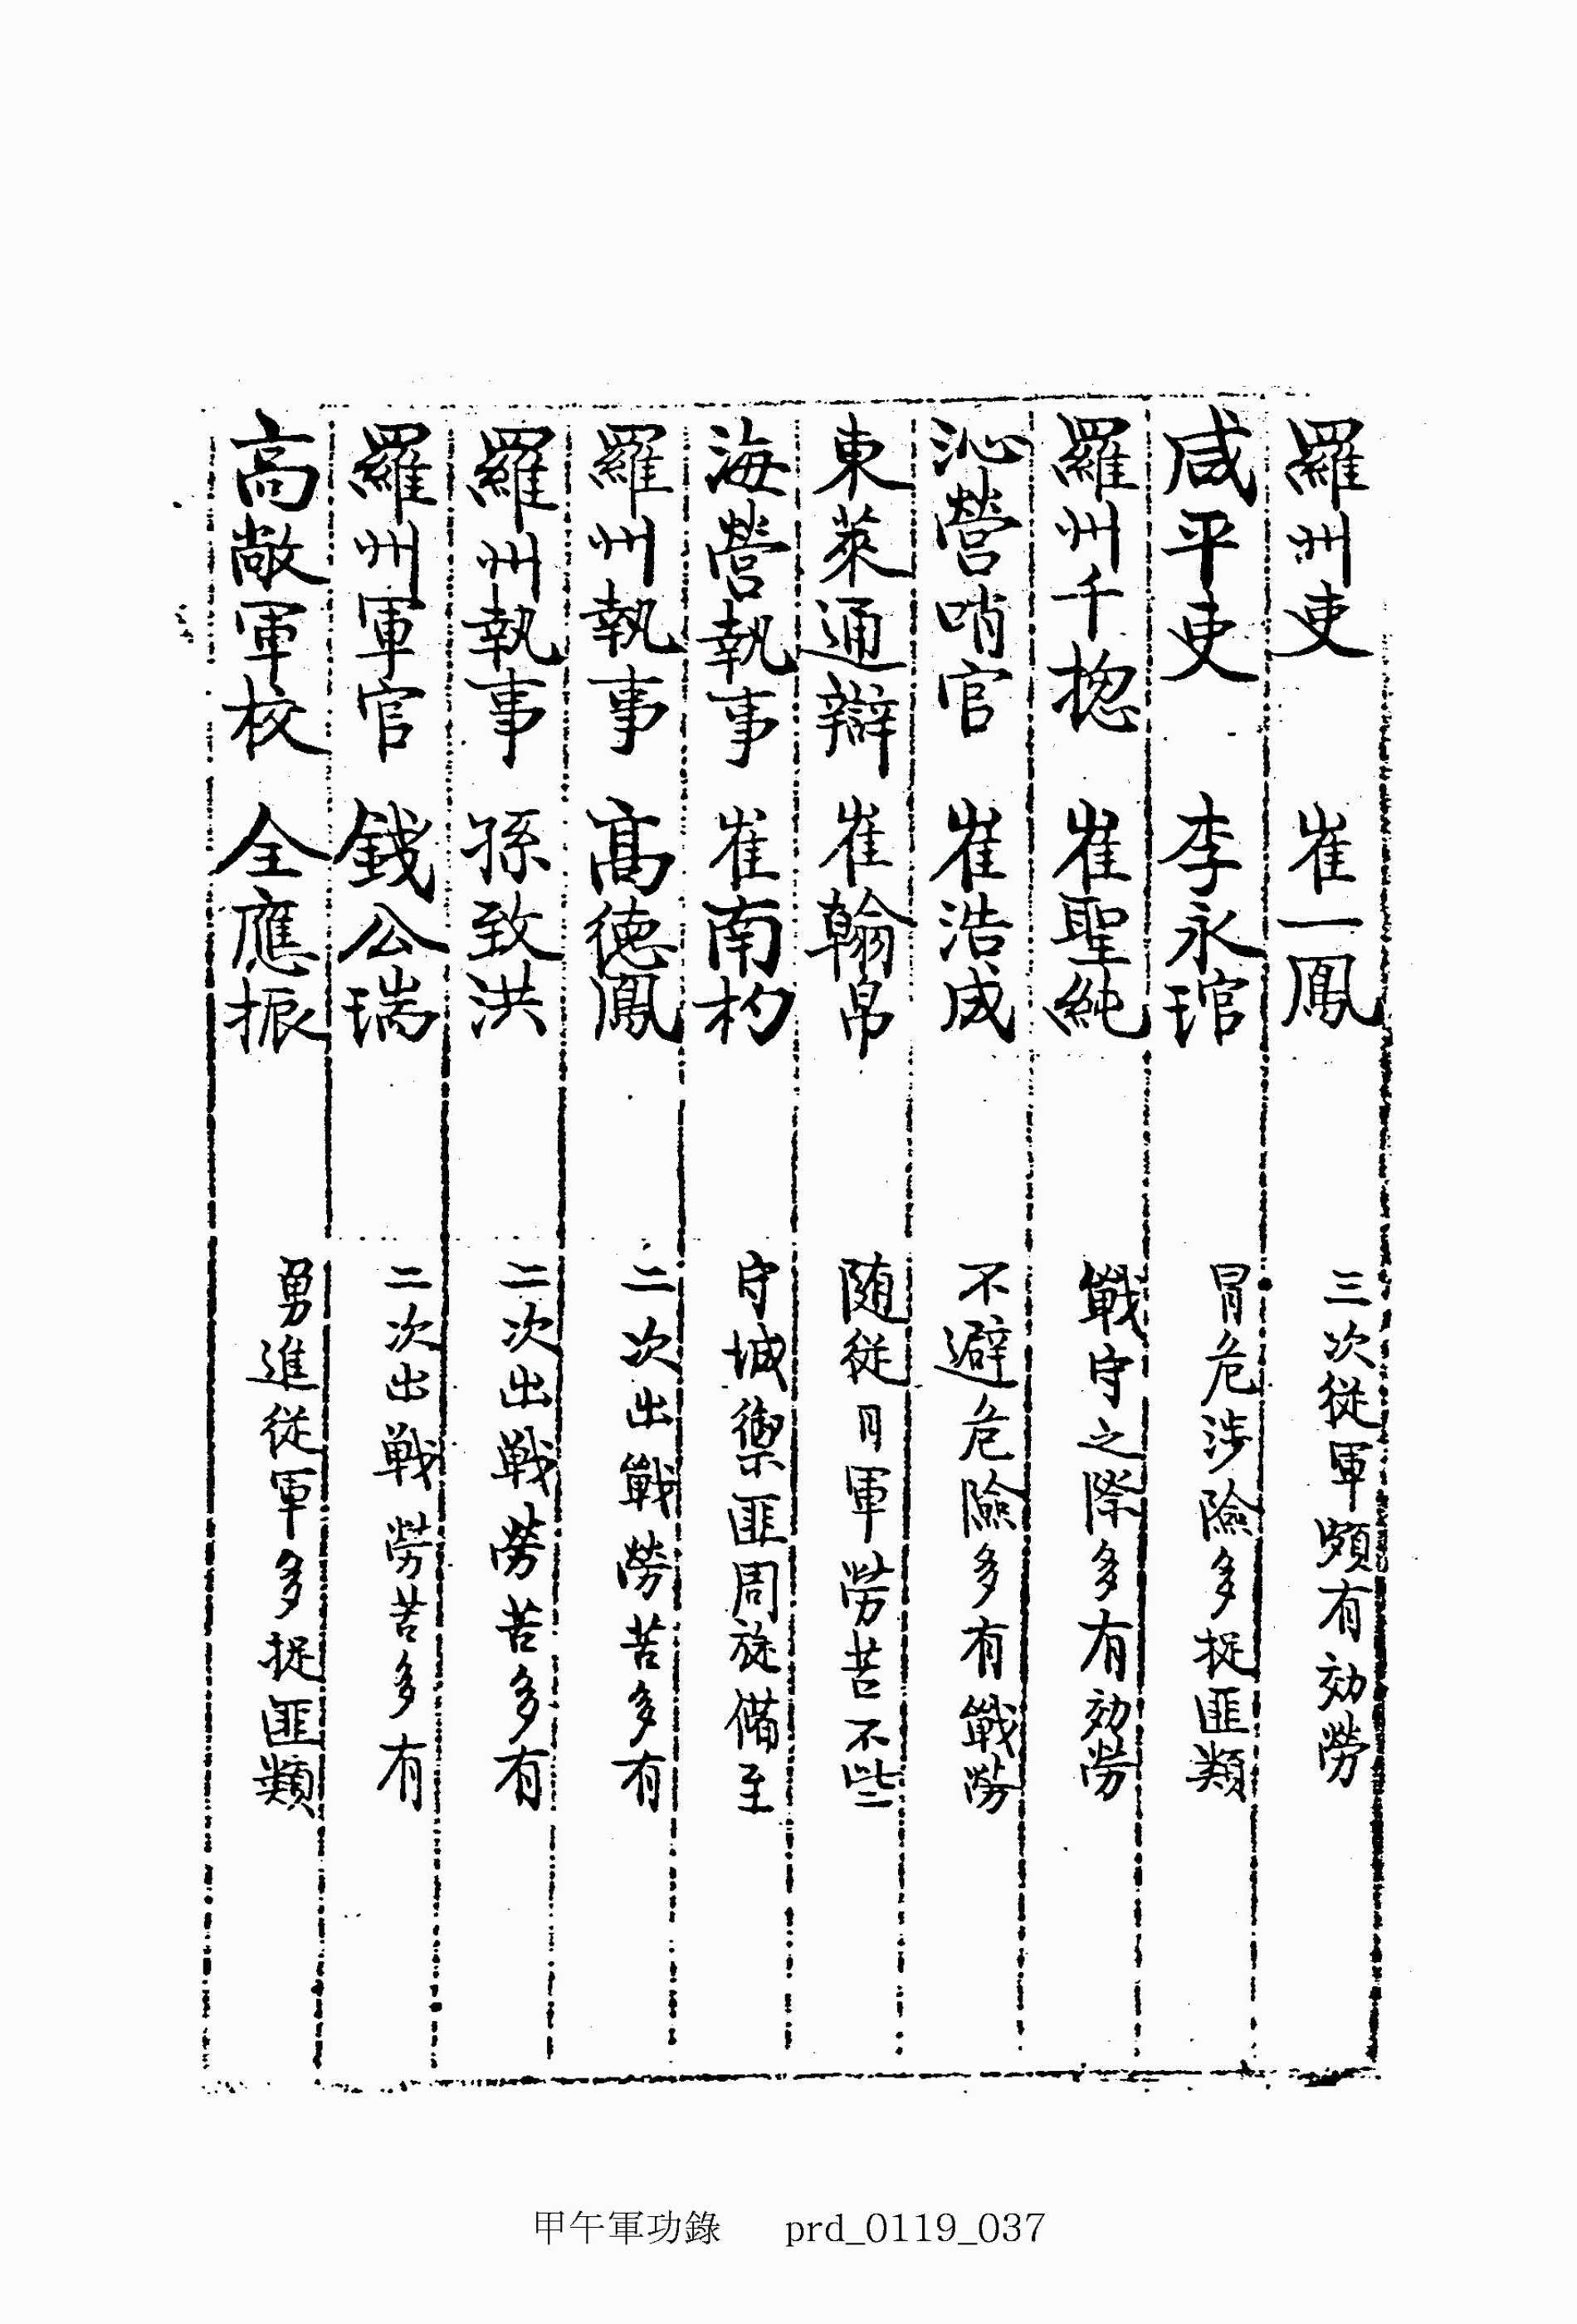 羅州吏 崔一鳳 三次從軍頗有効勞
咸平吏 李永琯 冒危涉險多捉匪類
羅州千摠 崔聖純 戰守之際多有効勞
沁營哨官 崔浩成 不避危險多有戰勞
東萊通辯 崔翰帛 随從日軍勞苦不些
海營執事 崔南杓 守城禦匪周旋備至
羅州執事 高德鳳 二次出戰勞苦多有
羅州執事 孫致洪 二次出戰勞苦多有
羅州軍官 錢公瑞 二次出戰勞苦多有
高敞軍校 全應振 勇進從軍多捉匪類
甲午軍功錄 prd_0119_037